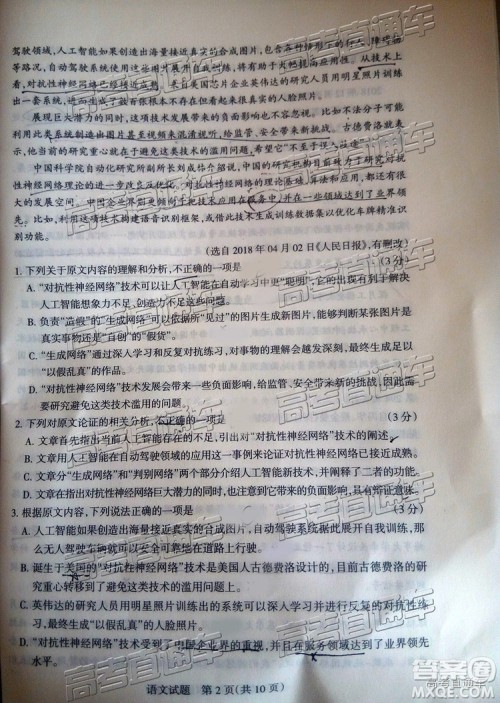 驾驶领域，人工智能如果创造出海量接近真实的合成图片，包含各种情形下的行人、障碍物
等路况，自动驾驶系统使用这些图片展开自我训练，将有助于大幅提高训练效率。从技术上
看，对抗性神经网络已经接近应用。来自美国芯片企业英伟达的研究人员用明星照片训练
出一套系统，进而生成了数百张根本不存在但以假乱真的人脸照片。
展现巨大潜力的同时，这项技术发展带来的负面影响也不容忽视。比如，不法分子可能
利用此类系统制造出图片甚至视频来混淆视听，给监管、安全带来新的挑战。古德费洛就表
示，他当前的研究重心就在于避免这类技术的滥用问题，希望它“不至于误入歧途”。
中国科学院自动化研究所副所长刘成林介绍说，中国的研究机构和高科技公司，对对抗
性神经网络理论的进一步改良及优化、对抗性神经网络的理论落地、算法和应用都有很
大的发展空间。中国的企业界也非常重视技术在服务中，并在一些领域达到了业界领先水
，比如，利用这项技术构建语音识别框架，或借此技术生成训练数据集以优化车牌精准识
别功能。
(选自 2018 年 04 月 02 日《人民日报》，有删改)
1. 下列关于原文内容的理解和分析，不正确的一项是 (3 分)
A. “对抗性神经网络”技术可以让人工智能在自动学习中更“聪明”，它的出现有可能解决
人工智能想象力不足、创造力不够的问题。
B. 负责“造假”的“生成网络”可以依据所见过的图片生成新图片，能够判断某张图片是
真实事物还是“自创”的“假货”。
C. “生成网络”通过深入学习和反复对抗练习，对事物的理解会越发深刻，最终生成以
假乱真的图片。
D. “对抗性神经网络”技术发展会带来一些负面影响，给监管、安全带来新的挑战，因此需
要研究避免这类技术滥用的问题。
2. 下列对原文论证的相关分析，不正确的一项是 (3 分)
A. 文章首先指出当前人工智能发展的不足，引出对“对抗性神经网络”技术的阐述。
B. 文章用人工智能在自动驾驶领域的应用这一事例来论证对抗性神经网络已接近应用。
C. 文章分“生成网络”和“判别网络”两个部分介绍人工智能新技术，并阐释了二者的功能。
D. 文章在指出对抗性神经网络巨大潜力的同时，也注意到它带来的负面影响，具有辩证意味。
3. 根据原文内容，下列说法正确的一项是 (3 分)
A. 人工智能如果创造出海量接近真实的合成图片，自动驾驶系统据此展开自我训练，那
么无人驾驶车辆就可安全可靠地在道路上行驶。
B. 诞生于美国的“对抗性神经网络”技术是美国人古德费洛设计的，目前古德费洛的研
究重心转移到了避免这类技术的滥用问题上。
C. 英伟达的研究人员用明星照片训练出的系统可以经过深入学习并进行反复对抗性练
习，最终生成“以假乱真”的人脸照片。
D. “对抗性神经网络”技术受到了中国企业界的重视，并且在服务领域达到了业界领先
水平。
语文试题 第 2 页(共 10 页)
高考直通车
答案圈
MXQE.COM